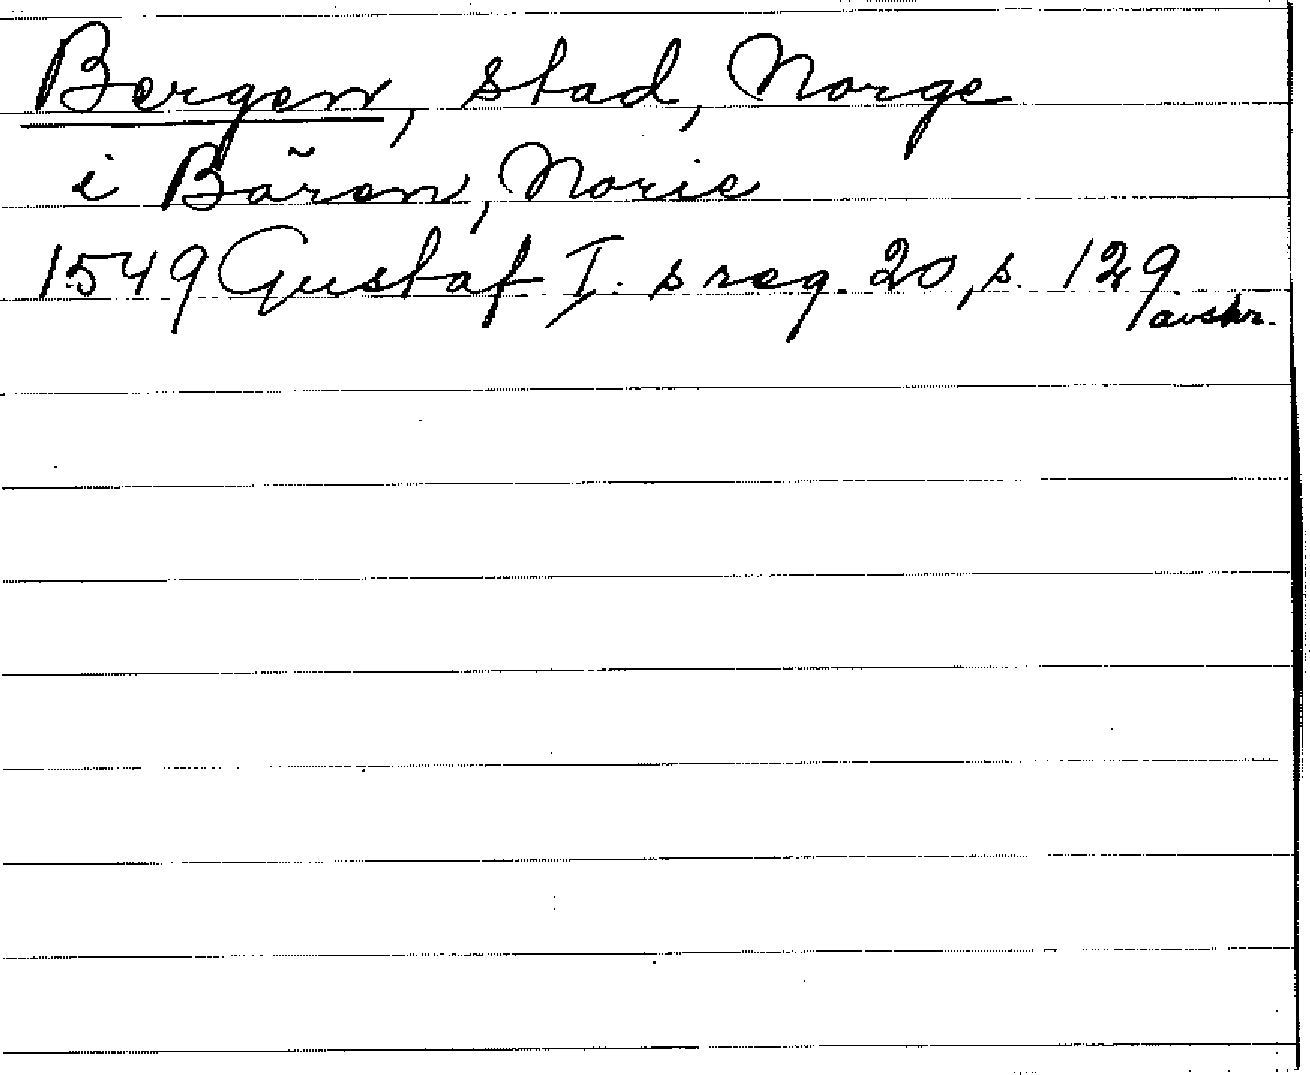 Bergen, stad, Norge
i Bären, Norie
1549 Gustaf I. s reg. 20, s. 129
avskr.